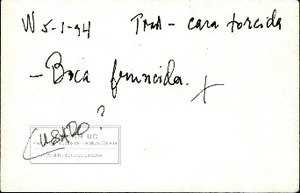 W 5-1-94 Trad - cara torcida
- Boca fruncida. x
¿USADO?